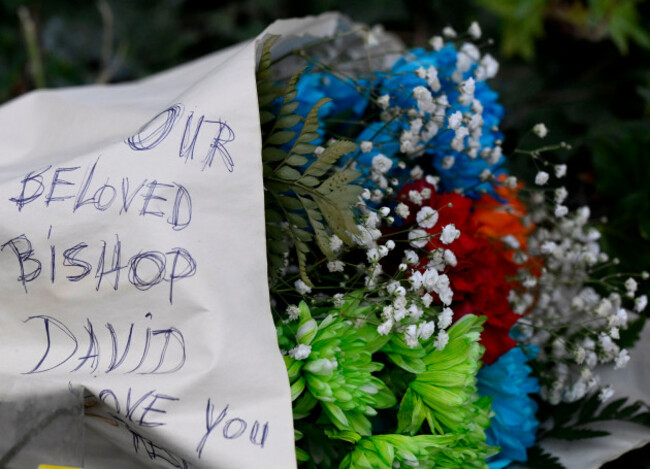 OUR
BELOVED
BishOP
DAViD
LOVE YOU